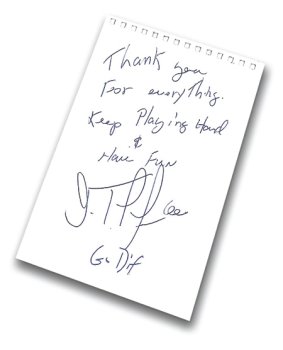 Thank you
For everyThing.
Keep Playing Hard
&
Have Fun